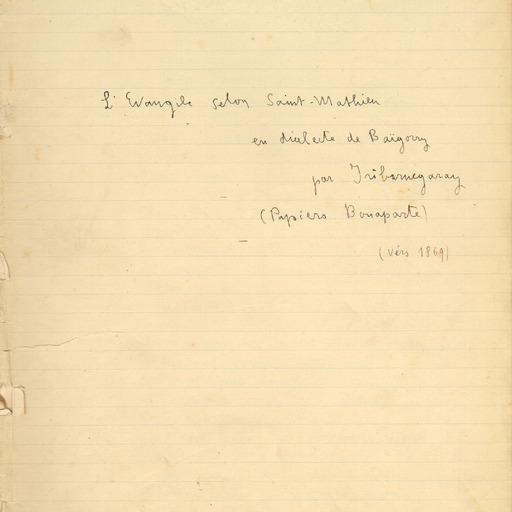 L'Evangile selon Saint-Mathieu
en dialecte de Baïgorry
par Iribarnegaray
(Papiers Bonaparte)
(vers 1869)